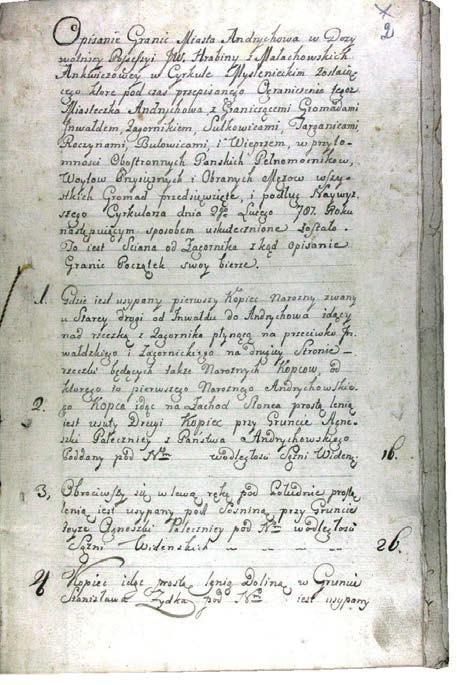 2
Opisanie Granic Miasta Andrychowa w Dozy
wotniey Possessyi JW. Hrabiny z Małachowskich
Ankwiczowey w Cyrkule Myslenickim zostaią
cego ktore pod czas przepisanego Ograniczenia tegoz
Miasteczka Andrychowa z Graniczącemi Gromadami
Inwałdem, Zagornikiem, Sułkowicami, Targanicami
Roczynami, Bulowicami, i Wieprzem, w przyto-
mności Obostronnych Panskich Pełnomocnikow,
Woytow Przysięznych i Obranych Męzow wszy-
stkich Gromad przedsięwzięte, i podług Naywyz
szego Cyrkularza dnia Lutego 787. Roku
następuiącym sposobem uskutecznione zostało.
To iest Sciana od Zagornika z kąd opisanie
Granic Początek swoy bierze.
1. Gdzie iest usypany pierwszy Kopiec Narozny zwany
u Starey drogi od Inwałdu do Andrychowa idący
nad rzeczką z Zagornika płynącą na przeciwko In-
wałdzkiego i Zagornickiego na drugiey Stronie
rzeczki będących takze Naroznych Kopcow, od
ktorego to pierwszego Naroznego Andrychowskie-
2. go Kopca idąc na Zachod Słonca prostą lenią
iest usuty Drugi Kopiec przy Gruncie Agne-
szki Pateczniey z Panstwa Andrychowskiego
Poddany pod Nro wodległosc Sązni Widen: 16.
3, Obrociwszy się w lewą rękę pod Południe prostą
lenią iest usypany pod Sosniną przy Gruncie
teyze Agnoszki Pateczniey pod Nro wodległosc
Sązni Widenskich 26.
4 Kopiec idąc prostą lenią Doliną w Gruncie
Stanisława Zydka pod Nro iest usypany